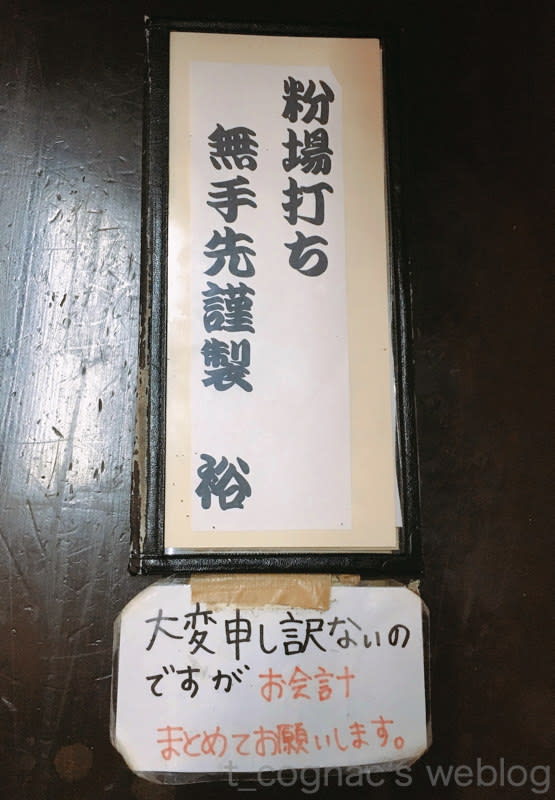 粉場打ち
無手先謹製　裕
大変申し訳ないの
ですが お会計
まとめてお願いします。
t_cognac's weblog